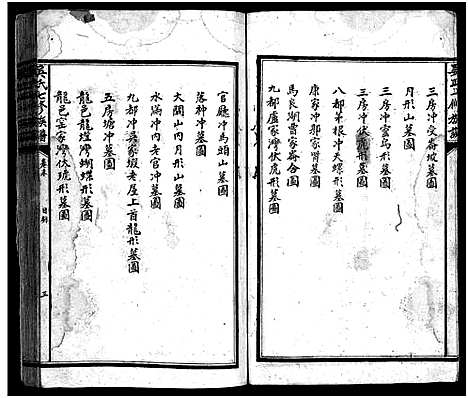 三房冲受斋坡墓圖
月形山墓圖
三房冲雲烏形墓圖
三房冲伏虎形墓圖
八都茅根冲天螺形墓圖
康家冲那家嘴墓圖
馬良湖曹家斋合圖
九都盧家灣伏虎形墓圖
官廳冲烏頭山墓圖
落神冲墓圖
大關山內月形山墓圖
水滿冲內老官冲墓圖
九都冲吴家塅老屋上首龍形墓圖
五房塘冲墓圖
龍邑龍煌灣蝴蝶形墓圖
龍邑窑家灣伏琥形墓圖
吳氏七修族譜
卷末
目録
三